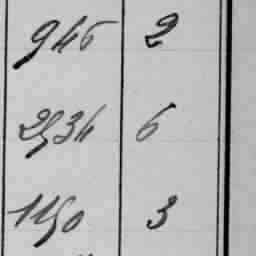 945 2
2534 6
1150 3